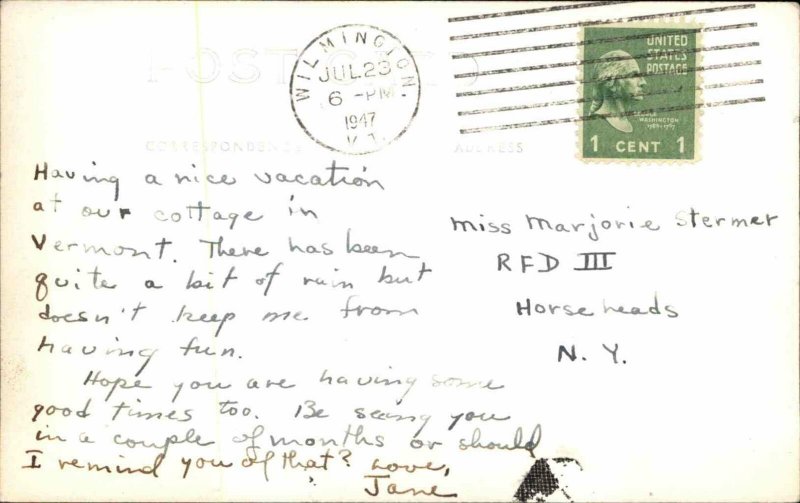 POST CARD
WILMINGTON.
JUL 23
6 - PM
1947
UNITED
STATES
POSTAGE
WASHINGTON
1789-1797
1 CENT 1
CORRESPONDENCE
ADDRESS
Having a nice vacation
at our cottage in
Vermont. There has been
quite a bit of rain but
doesn't keep me from
having fun.
Hope you are having some
good times too. Be seing you
in a couple of months or should
I remind you of that? Love,
Jane
Miss Marjorie Stermer
RFD III
Horseheads
N. Y.